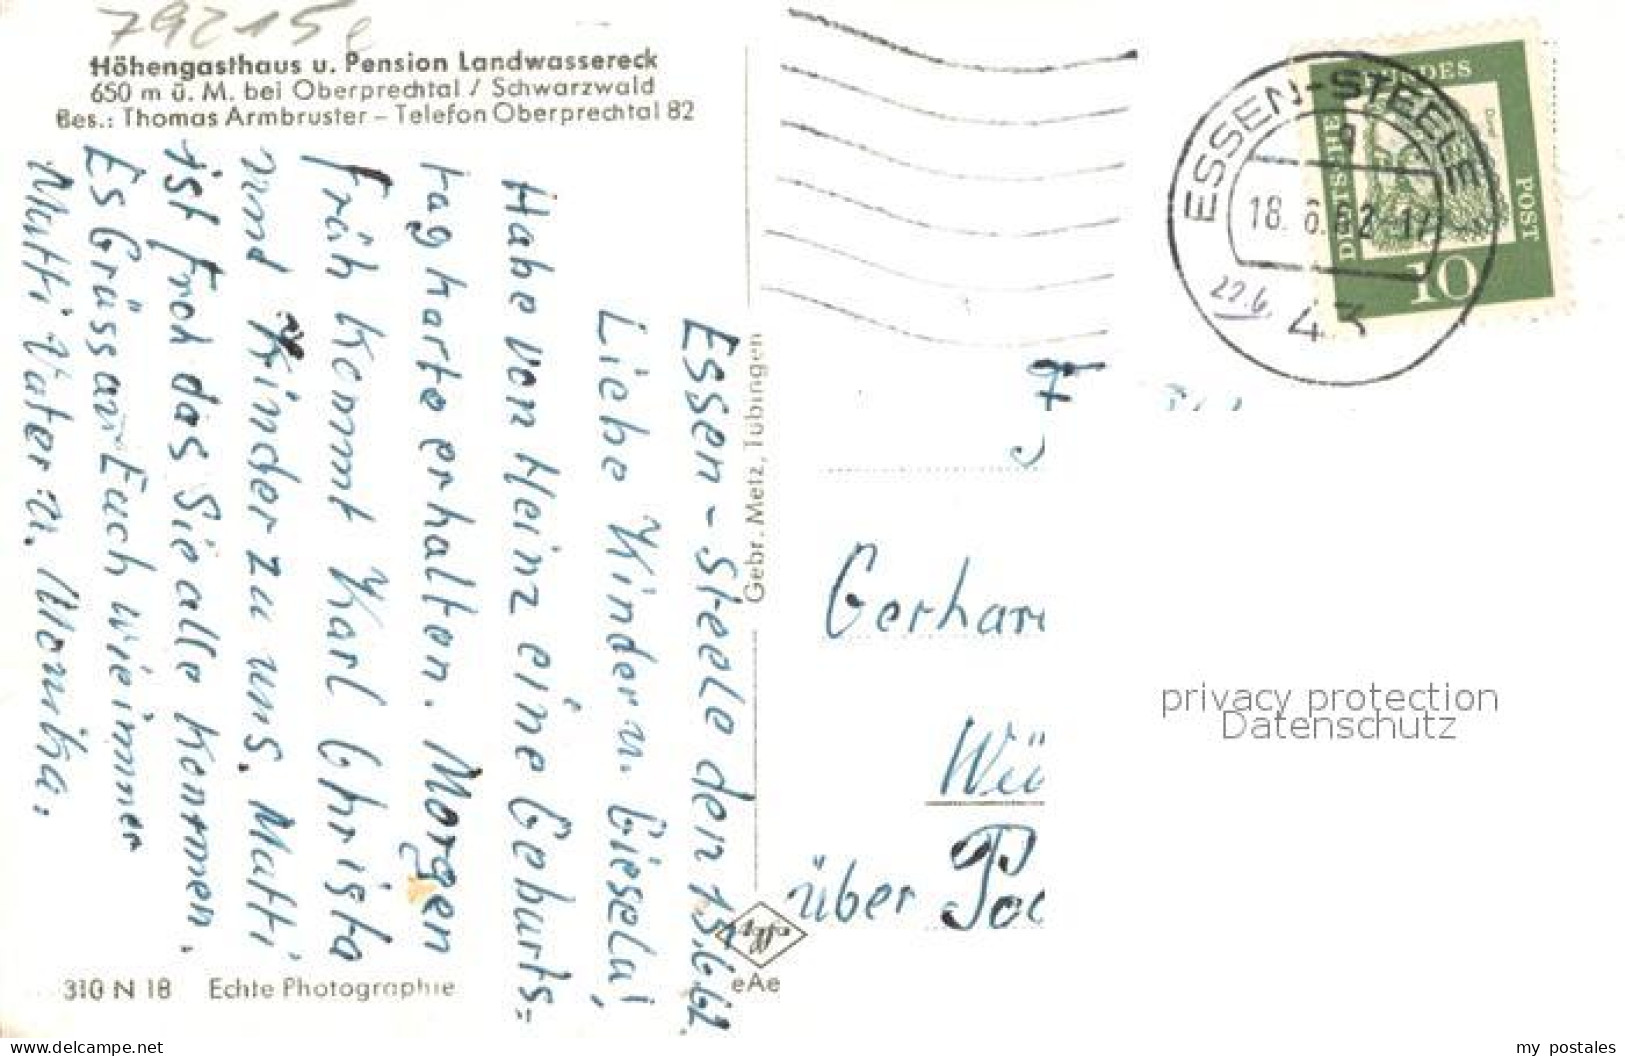 79215e
Höhengasthaus u. Pension Landwassereck
650 m ü. M. bei Oberprechtal / Schwarzwald
Bes.: Thomas Armbruster – Telefon Oberprechtal 82
Essen-Steele den 15.6.62.
Liebe Kinder u. Giesela!
Habe von Heinz eine Geburts=
tag harte erhalten. Morgen
früh kommt Karl Christa
und Kinder zu uns. Mutti
ist froh das Sie alle kommen.
Es Grüssan Euch wie immer
Mutti Vater u. Monika.
310 N 18 Echte Photographie
Gebr. Metz, Tübingen
eAe
ESSEN-STEELE
18. 6. 62 - 17
22.6.
43
DEUTSCHE BUNDESPOST
10
F
Gerhar
Wü
über Po
privacy protection
Datenschutz
www.delcampe.net
my_postales